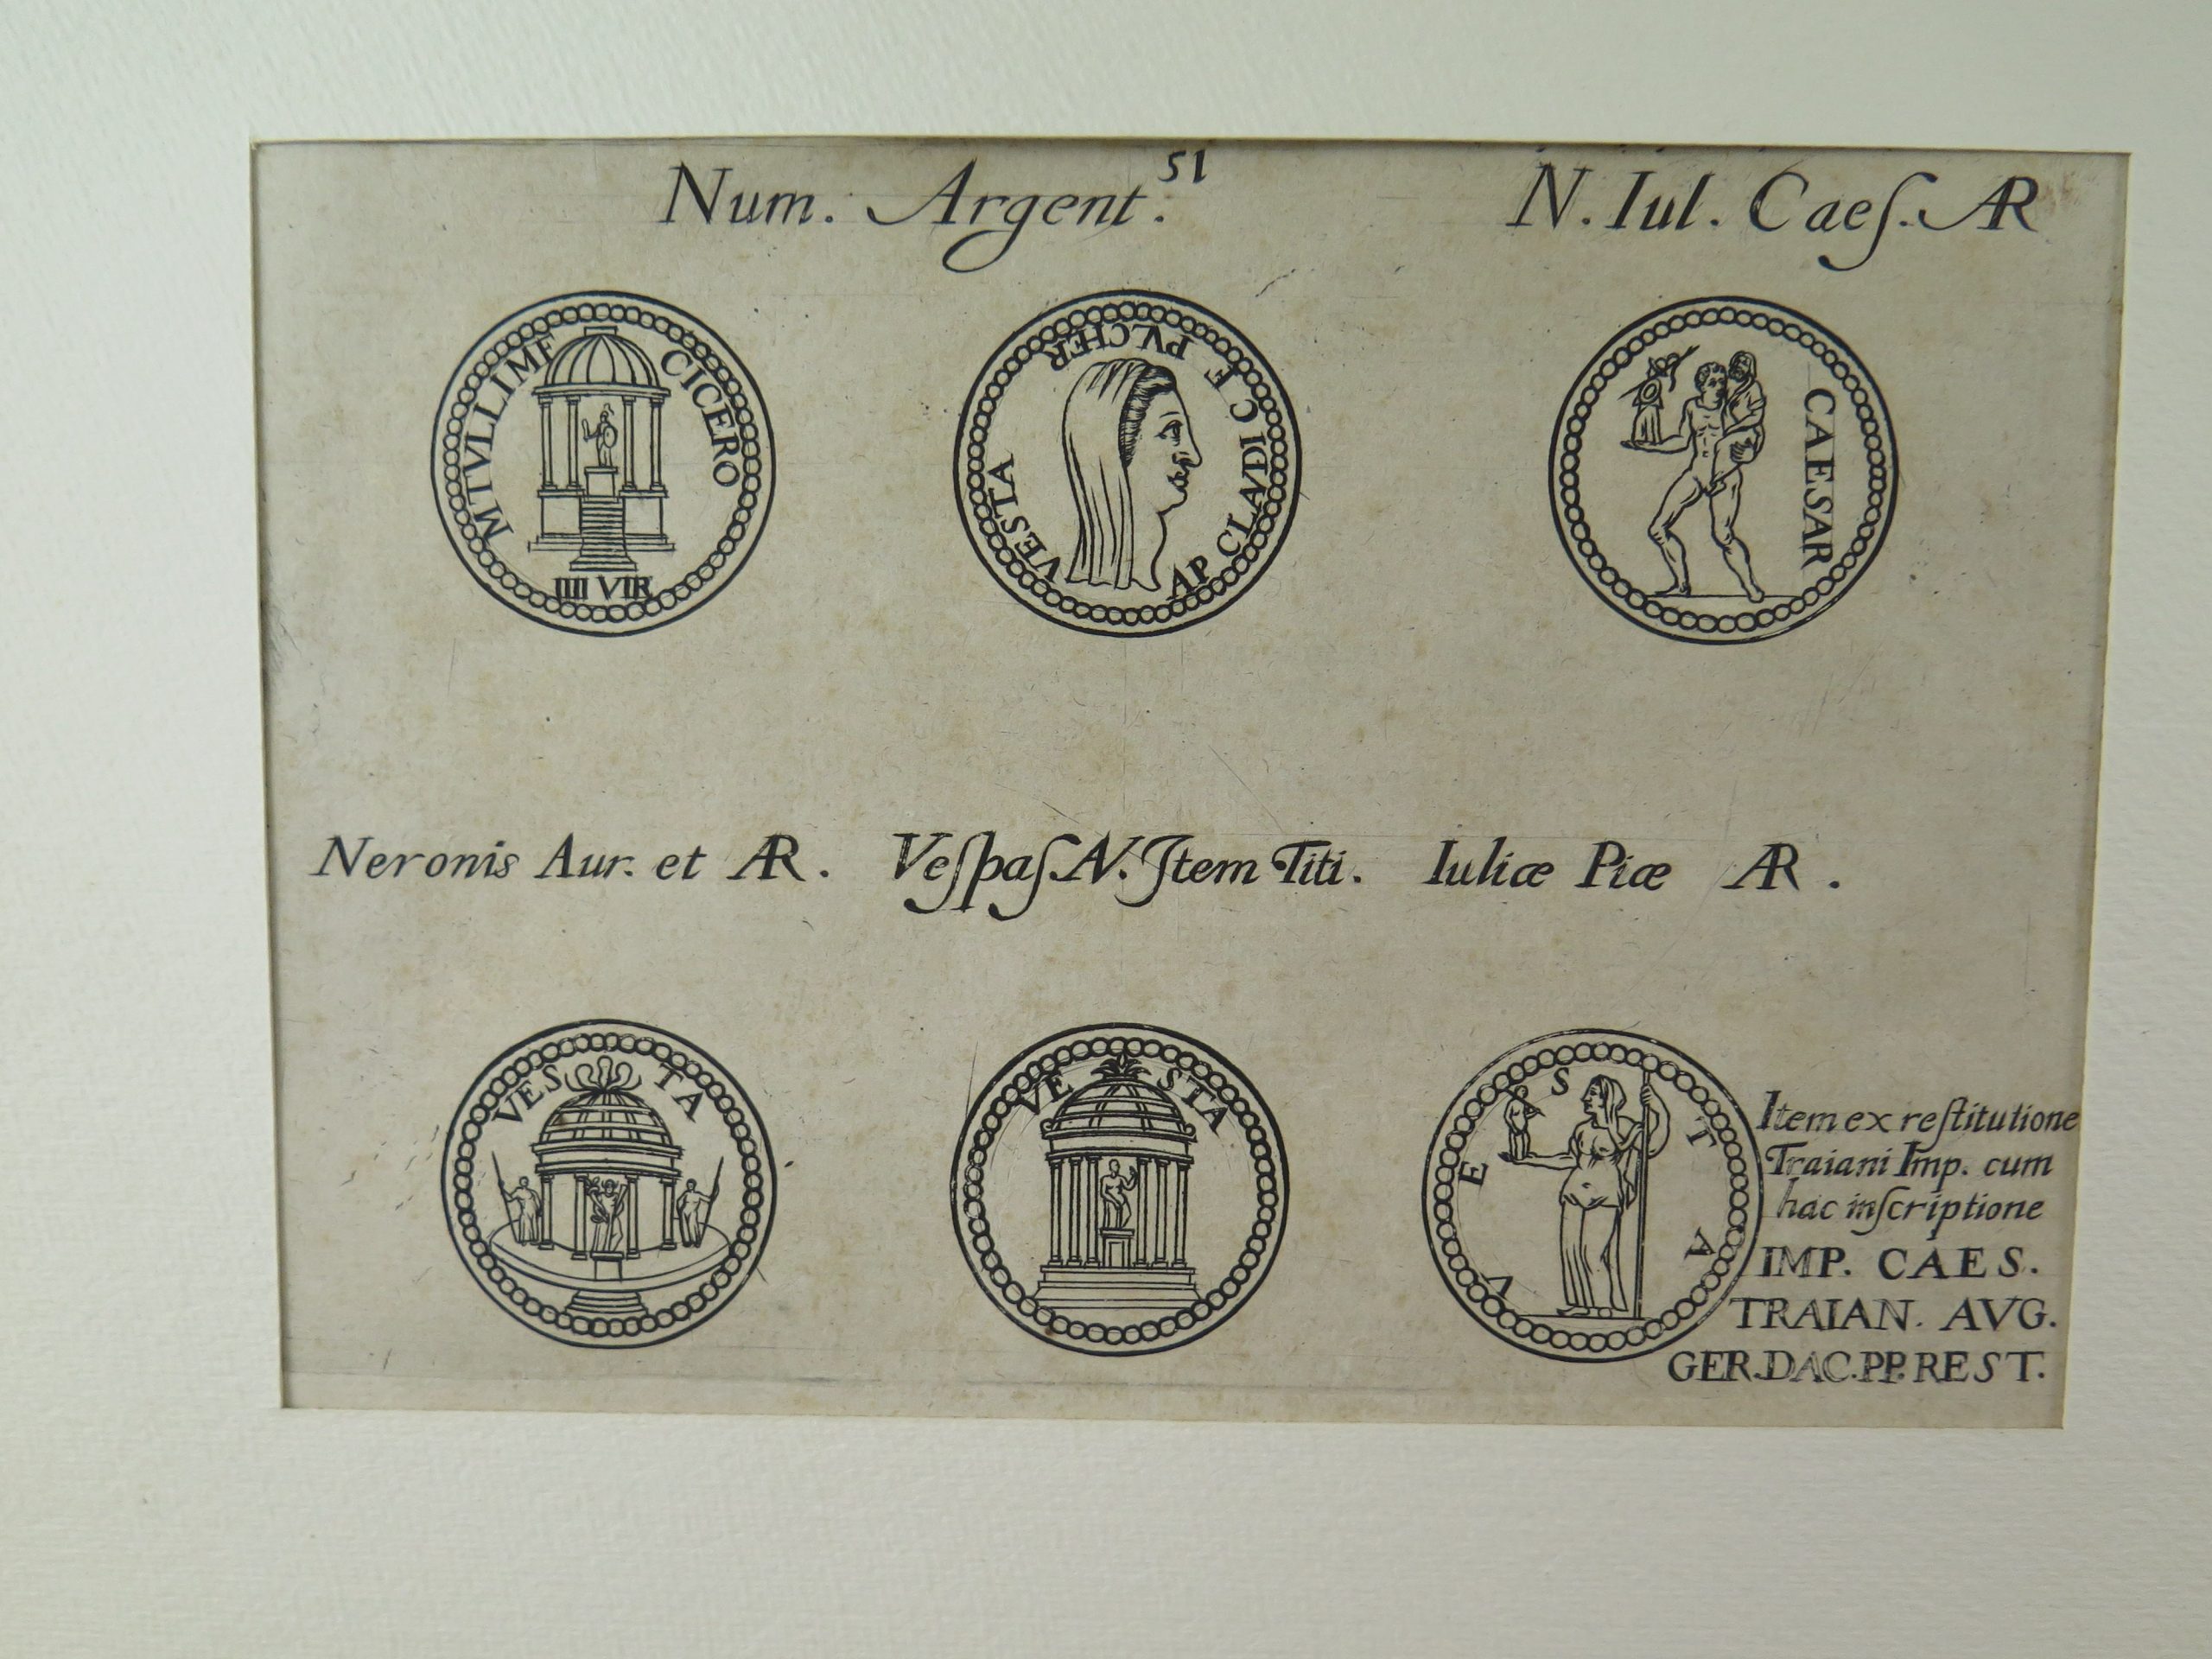 51
Num. Argent.
N. Iul. Caeſ. AR
M TVLLI MF CICERO
IIII VIR
AP CLAVDI C F PVLCHER
VESTA
CAESAR
Neronis Aur. et AR.
Veſpaſ. AV. Item Titi.
Iuliæ Piæ AR.
VES TA
VE STA
V E S T A
Item ex reſtitutione
Traiani Imp. cum
hac inſcriptione
IMP. CAES.
TRAIAN. AVG.
GER. DAC. PP. REST.